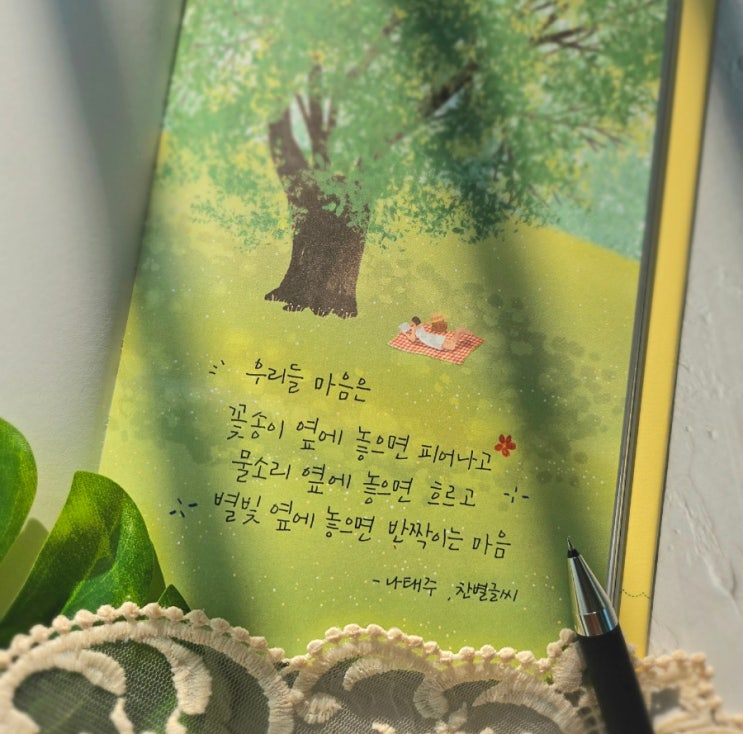 우리들 마음은
꽃송이 옆에 놓으면 피어나고
물소리 옆에 놓으면 흐르고
별빛 옆에 놓으면 반짝이는 마음
- 나태주 , 찬별글씨